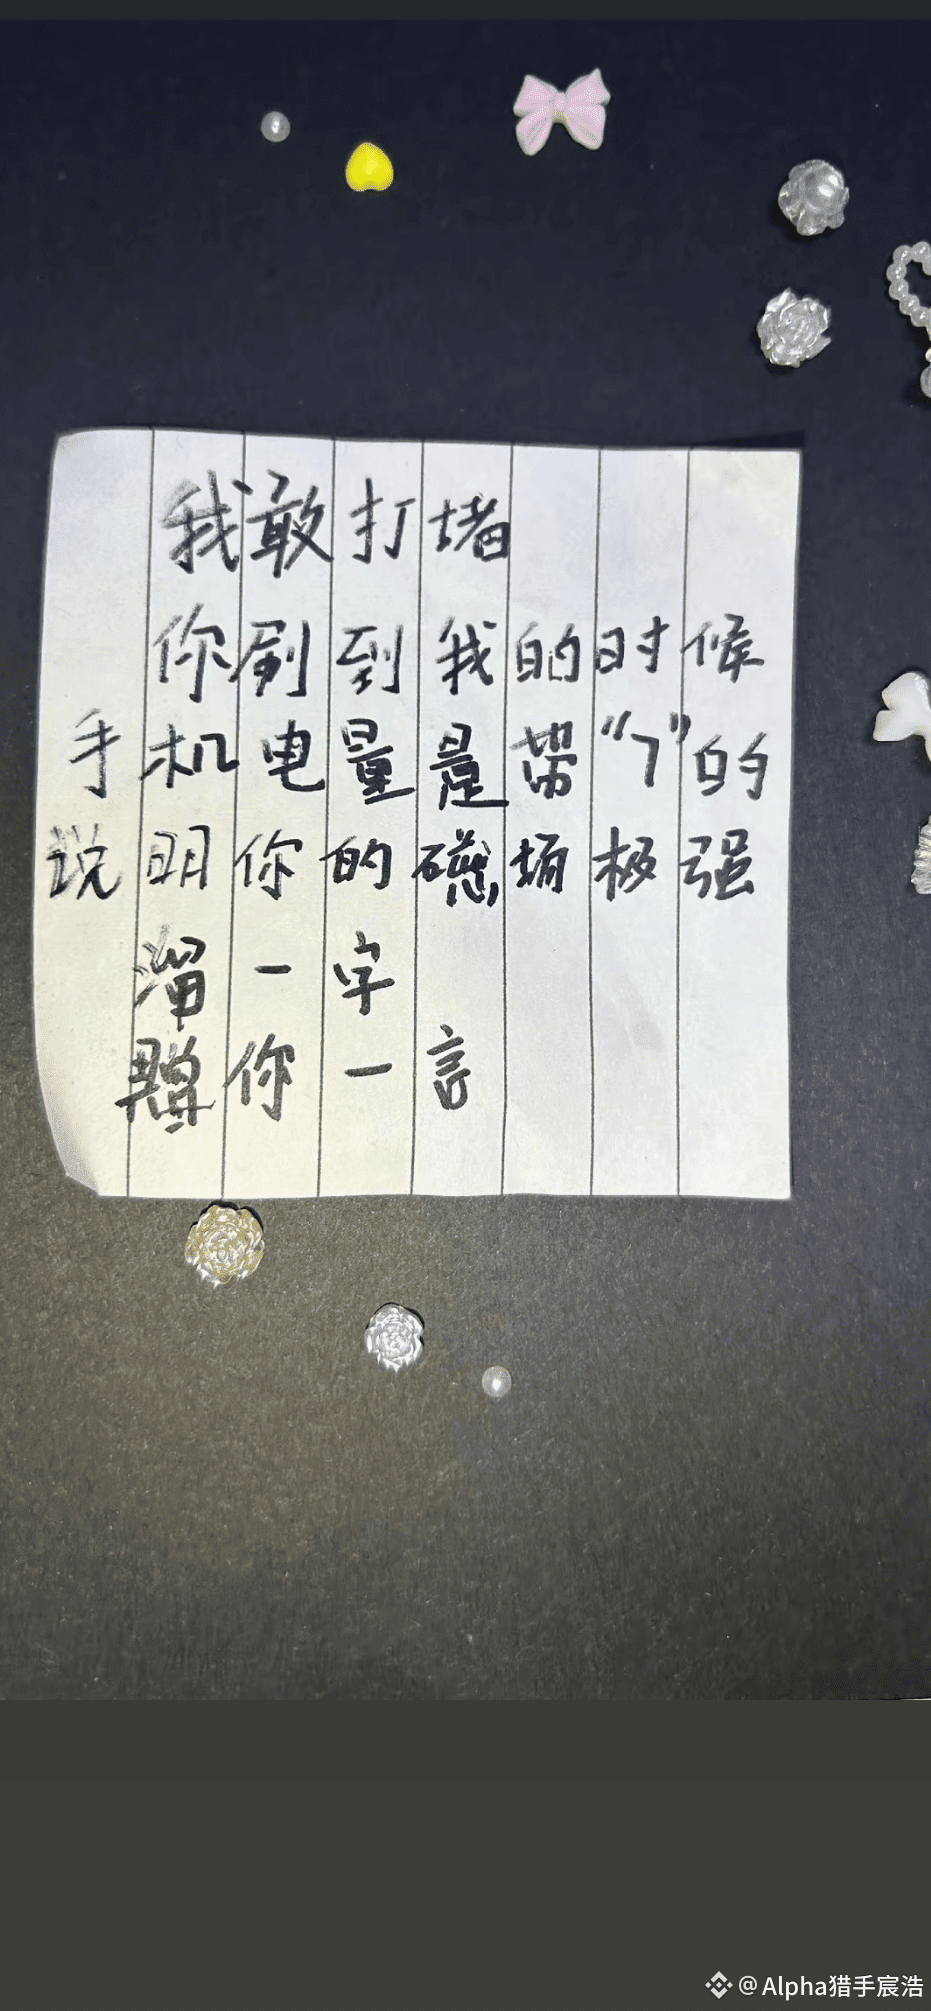 我敢打堵
你刷到我的时候
手机电量是带“7”的
说明你的磁场极强
溜一字
赠你一言
@Alpha猎手宸浩